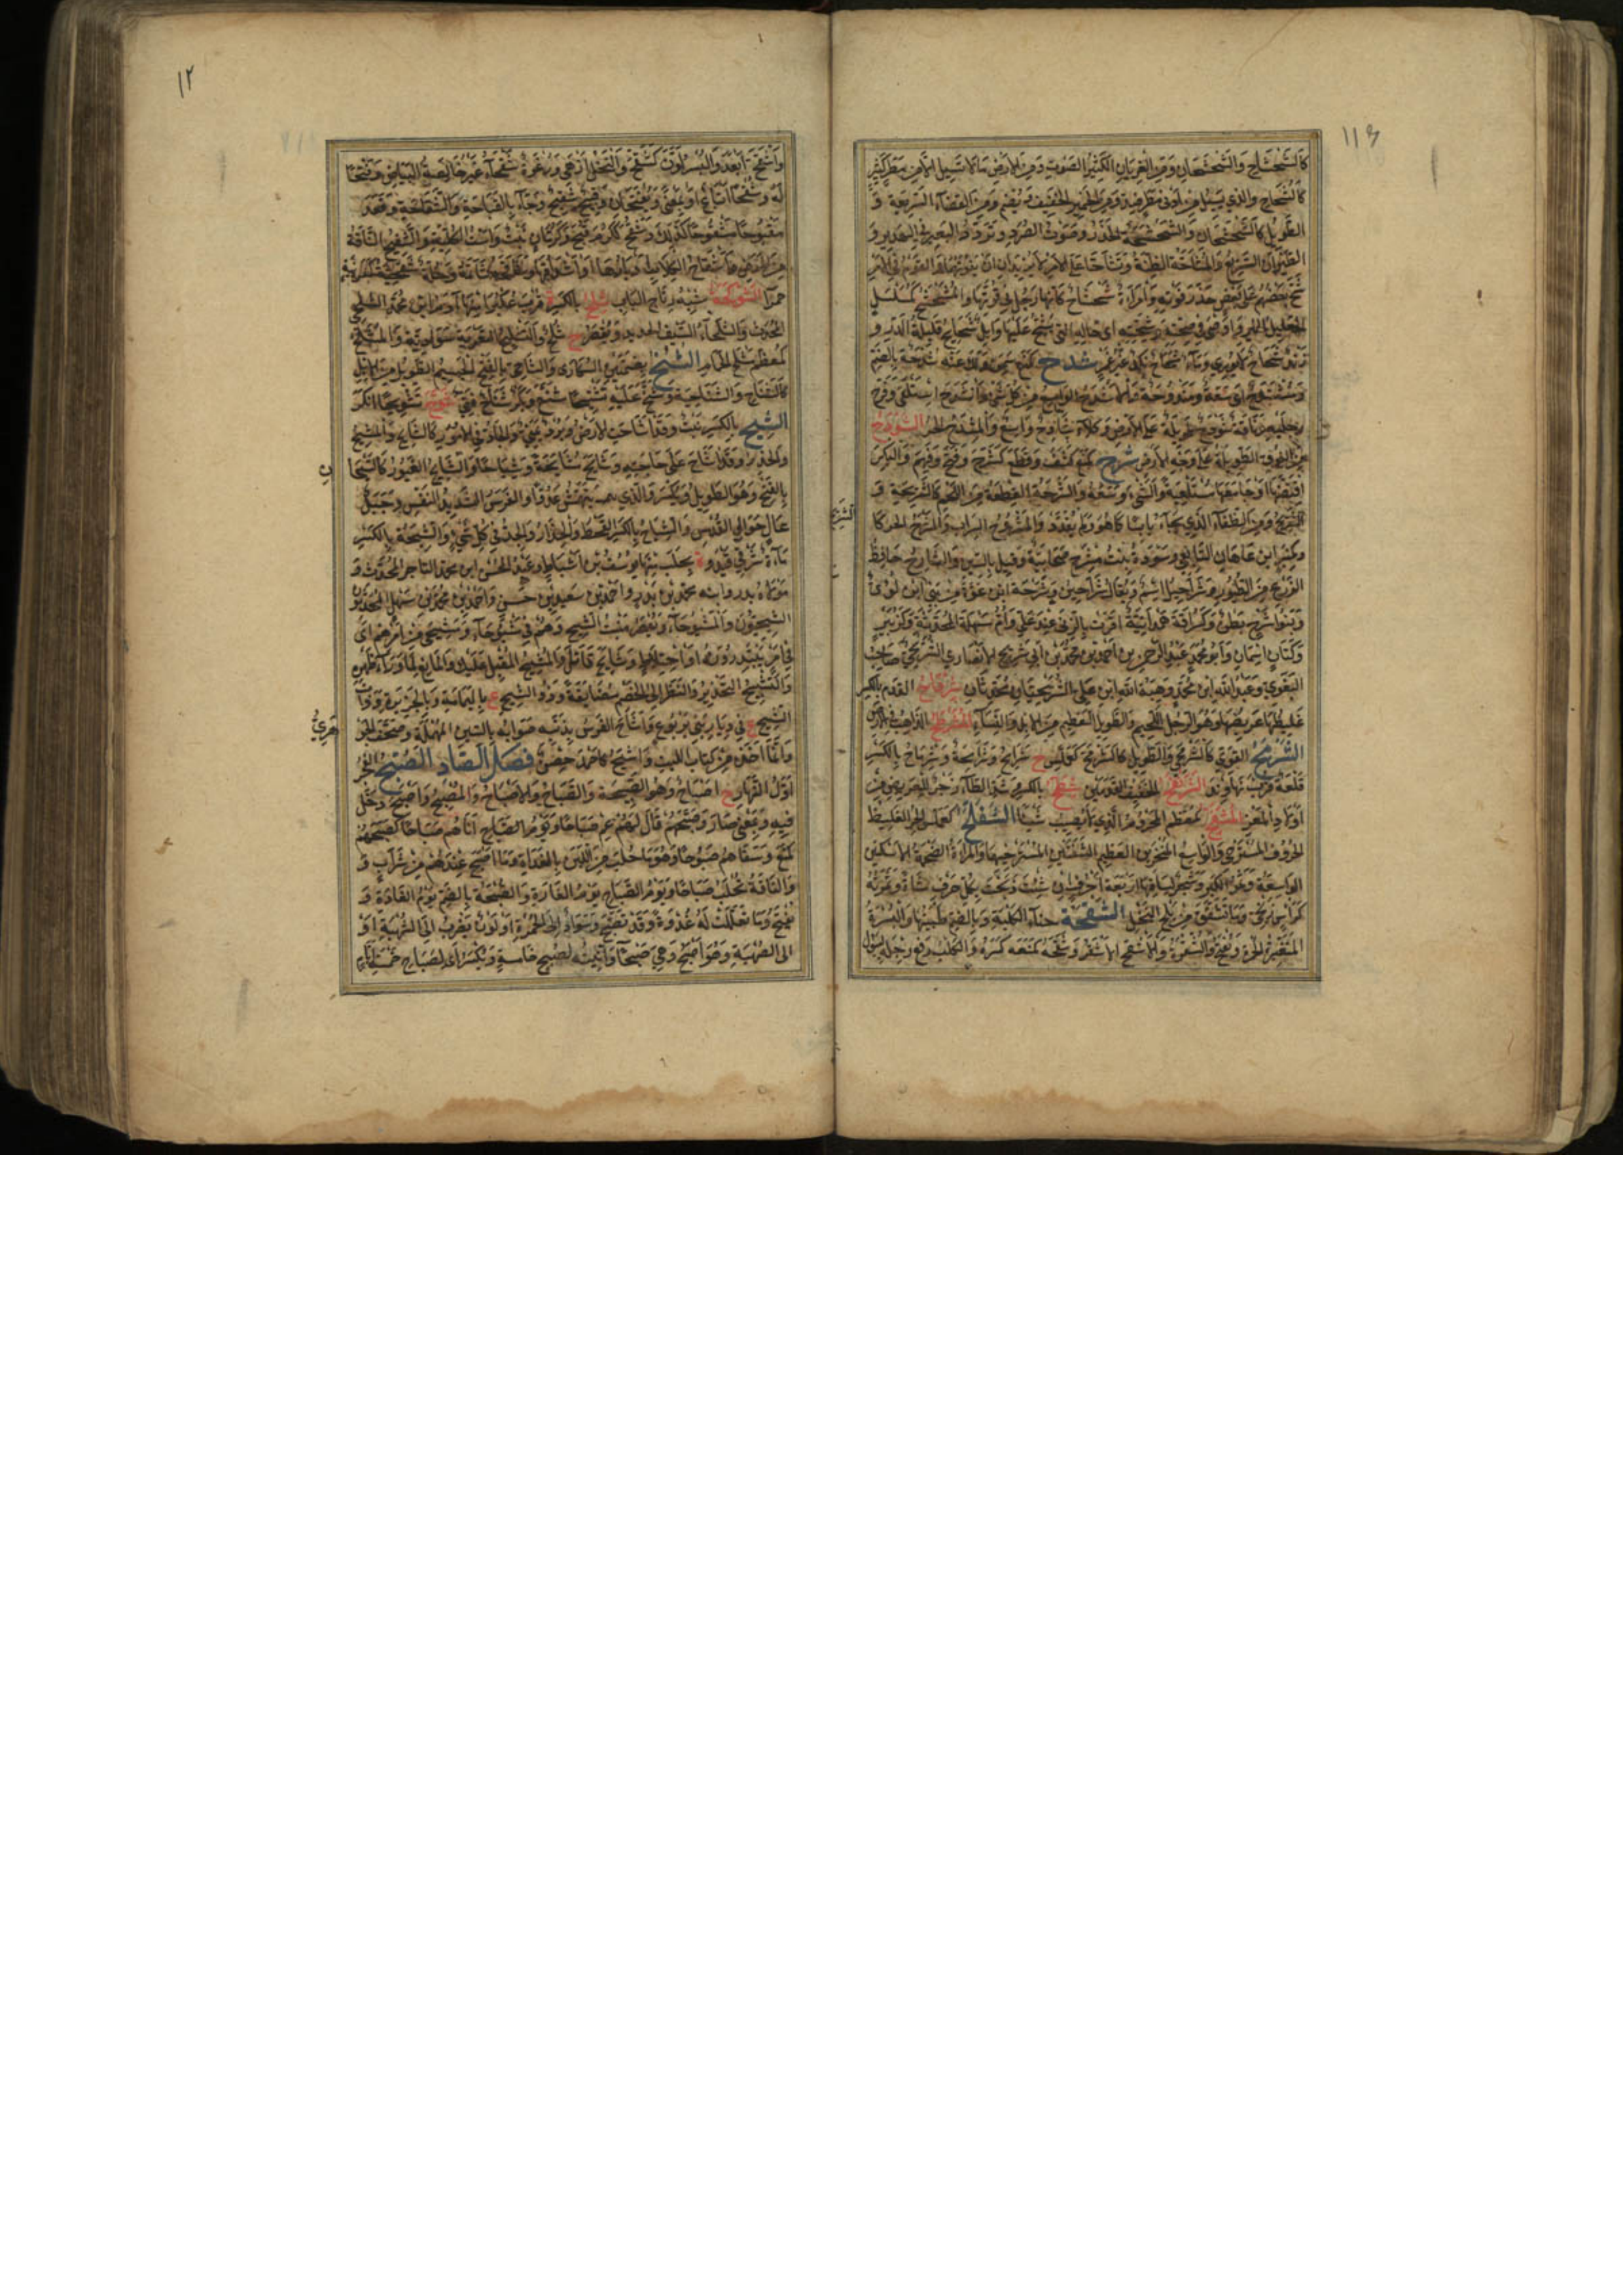 ١١٣
كالشحشاح والشحشحان ومن الغربان الكثير الصوت ومن الارض ما لا تسيل الا من مطر كثير
كالشحاح والذي يسيل من ادنى مطر ضد ومن الحمير الخفيف ويضم ومن القطاة السريعة و
الطويل كالشحشحان والشحشحة الحذر وصوت الصرد وتردد البعير في الهدير و
الطيران السريع والمشاحة الضنة وتشاحا على الامر لا يريدان ان يفوتهما والقوم في الامر
شح بعضهم على بعض حذر فوته وامراة شحشاح كانها رجل في قوتها والمشحشح كمسلسل
القليل الخير واوصى في صحته وشحته اى حاله التي يشح عليها وابل شحايح قليلة الدر و
زند شحاح لا يوري وماء شحاح نكد غير غمر شدح كمنع سمن ولك عنه شدحة بالضم
ومشتدح اى سعة ومندوحة والاشدح الواسع من كل شئ وانشدح استلقى وفرج
رجليه وناقة شودح طويلة على الارض وكلاء شادح واسع والمشدح الحر الشوذح
من النوق الطويلة على وجه الارض شرح كمنع كشف وقطع كشرح وفتح وفهم والبكر
افتضها او جامعها مستلقية والشئ وسعه والشرحة القطعة من اللحم كالشريحة و
الشريح ومن الظباء الذي يجاء به يابسا كما هو لم يقدد والمشروح السراب والمشرح الحر كا
ومكنبر ابن عاهان التابعي وسودة بنت مشرح صحابية وقيل بالسين والشارح حافظ
الزرع من الطيور وشراحيل اسم ويقال شراحين وشرحة ابن عوة من بني ابن لوي
وبنو شرح بطن وكسراقة همدانية اقرت بالزنى عند علي وام سهلة المحدثة وكزبير
وكتان اسمان وابو محمد عبد الرحمن بن احمد بن محمد بن ابي شريح الانصاري الشريحي صاحب
البغوي وعبد الله ابن محمد وهبة الله ابن علي الشريحيان محدثان شرداح القدم بالكسر
غليظها عريضها وهو الرجل اللحيم والطويل العظيم من الابل والنساء المشرطح الذاهب في الارض
الشرمح القوي كالشرمحي والطويل كالشرمح كعملس ج شرامح وشرامحة وشرماح بالكسر
قلعة قرب نهاوند الشرنفح الخفيف القدمين شطح بالكسر مشد الطاء زجر للعريض من
اولاد المعز المشفح كمعظم المحروم الذي لا يصيب شيئا الشفلح كعملس الحر الغليظ
الحروف المسترخي والواسع المنخرين العظيم الشفتين المسترخيهما والمراة الضخمة الاسكتين
الواسعة وثمر الكبر وشجر لساقها اربعة احرف ان شئت ذبحت بكل حرف شاة وثمرته
كراس زنجي وما تشقق من بلح النخل الشقحة حياء الكلبة وبالضم طبيتها والبسرة
المتغيرة الحمرة ويفتح والشقرة والاشقح الاشقر وشقحه كمنعه كسره والكلب رفع رجله ليبول
الشريح
١٢
واشقح ابعد والبسر لون كشقح والنخل ازهى ورغوة شقحاء غير خالصة البياض وقبحا
له وشقحا اتباع او بمعنى ويفتحان وقبيح شقيح وجاء بالقباحة والشقاحة وقعد
مقبوحا مشقوحا كذلك وشقح ككرم قبح وكرمان نبت واست الكلبة والشقيح الناقة
حمرا الشوكحة شبه رتاج الباب شلح بالكسر ة قرب عكبرا منها آدم ابن محمد الشلحي
المحدث والشلحاء السيف الحديد ويقصر ج شلح والتشليح التعرية سوادية والمشلح
كمعظم مسلخ الحمام الشنح بضمتين السكارى والشناحي بالفتح الجسيم الطويل من الابل
كالشناح والشناحية وشنح عليه تشنيحا شنع وبكر شناح فتي شوح تشويحا انكر
الشيح بالكسر نبت وقد اشاحت الارض وبرد يمني والجاد في الامور كالشايح والمشيح
والحذر وقد شاح على حاجته وشايح مشايحة وشياحا والشايح الغيور كالشيحا
بالفتح وهو الطويل ويكسر والذي يتهمس عدوا والفرس الشديد النفس وجبل
عال حوالي القدس والشياح بالكسر القحط والحذار والجد في كل شئ والشيحة بالكسر
ماءة شرقي فيد و ة بحلب منها يوسف بن اسباط وعبد المحسن ابن محمد التاجر المحدث و
مولاه بدر وابنه محمد بن بدر واحمد بن سعيد بن حسن واحمد بن محمد بن سهل المحدثون
الشيحيون والمشيوحاء ويقصر منبت الشيح وهم في مشيوحاء ومشيحى من امرهم اى
في امر يبتدرونه او اختلاط وشايح قاتل والمشيح المقبل عليك والمانع لما وراء ظهره
والتشييح التحذير والنظر الى الخصم مضايقة وذو الشيح ع باليمامة وبالجزيرة وذات
الشيح ع في ديار بني يربوع واشاح الفرس بذنبه صوابه بالسين المهملة وصحف الجو
وانما اخذه من كتاب الليث واشيح كاحمد حصن فصل الصاد الصبح الفجر
اول النهار ج اصباح وهو الصبيحة والصباح والاصباح والمصبح واصبح دخل
فيه وبمعنى صار وصبحهم قال لهم عم صباحا ويوم الصباح اتاهم صباحا كصبحهم
كمنع وسقاهم صبوحا وهو ما حلب من اللبن بالغداة وما اصبح عندهم من شراب و
والناقة تحلب صباحا ويوم الصباح يوم الغارة والصبحة بالضم نوم الغداة و
يفتح وما تعللت به غدوة وقد تصبح وسواد الى الحمرة او لون يضرب الى الشهبة او
الى الصهبة وهو اصبح وهي صبحاء واتيته لصبح خامسة ويكسر اى لصباح خمسة ايام
ن
هري